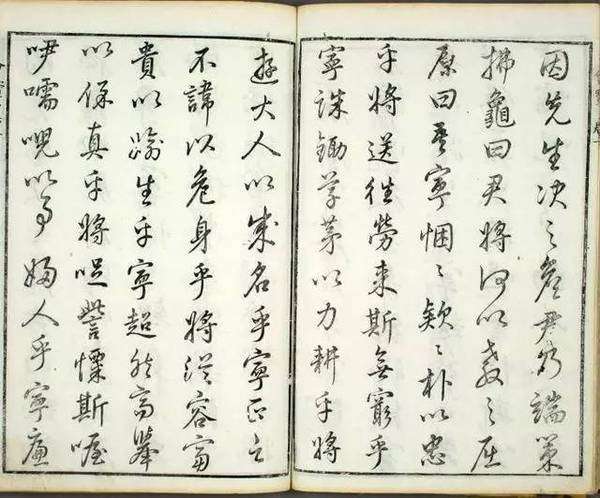 因先生决之詹尹乃端策
拂龜曰君將何以教之屈
原曰吾寧悃〻欵〻朴以忠
乎將送往勞来斯無窮乎
寧誅鋤草茅以力耕乎將
遊大人以成名乎寧正言
不諱以危身乎將從容富
貴以媮生乎寧超然高舉
以保真乎將哫訾慄斯喔
咿嚅唲以事婦人乎寧廉